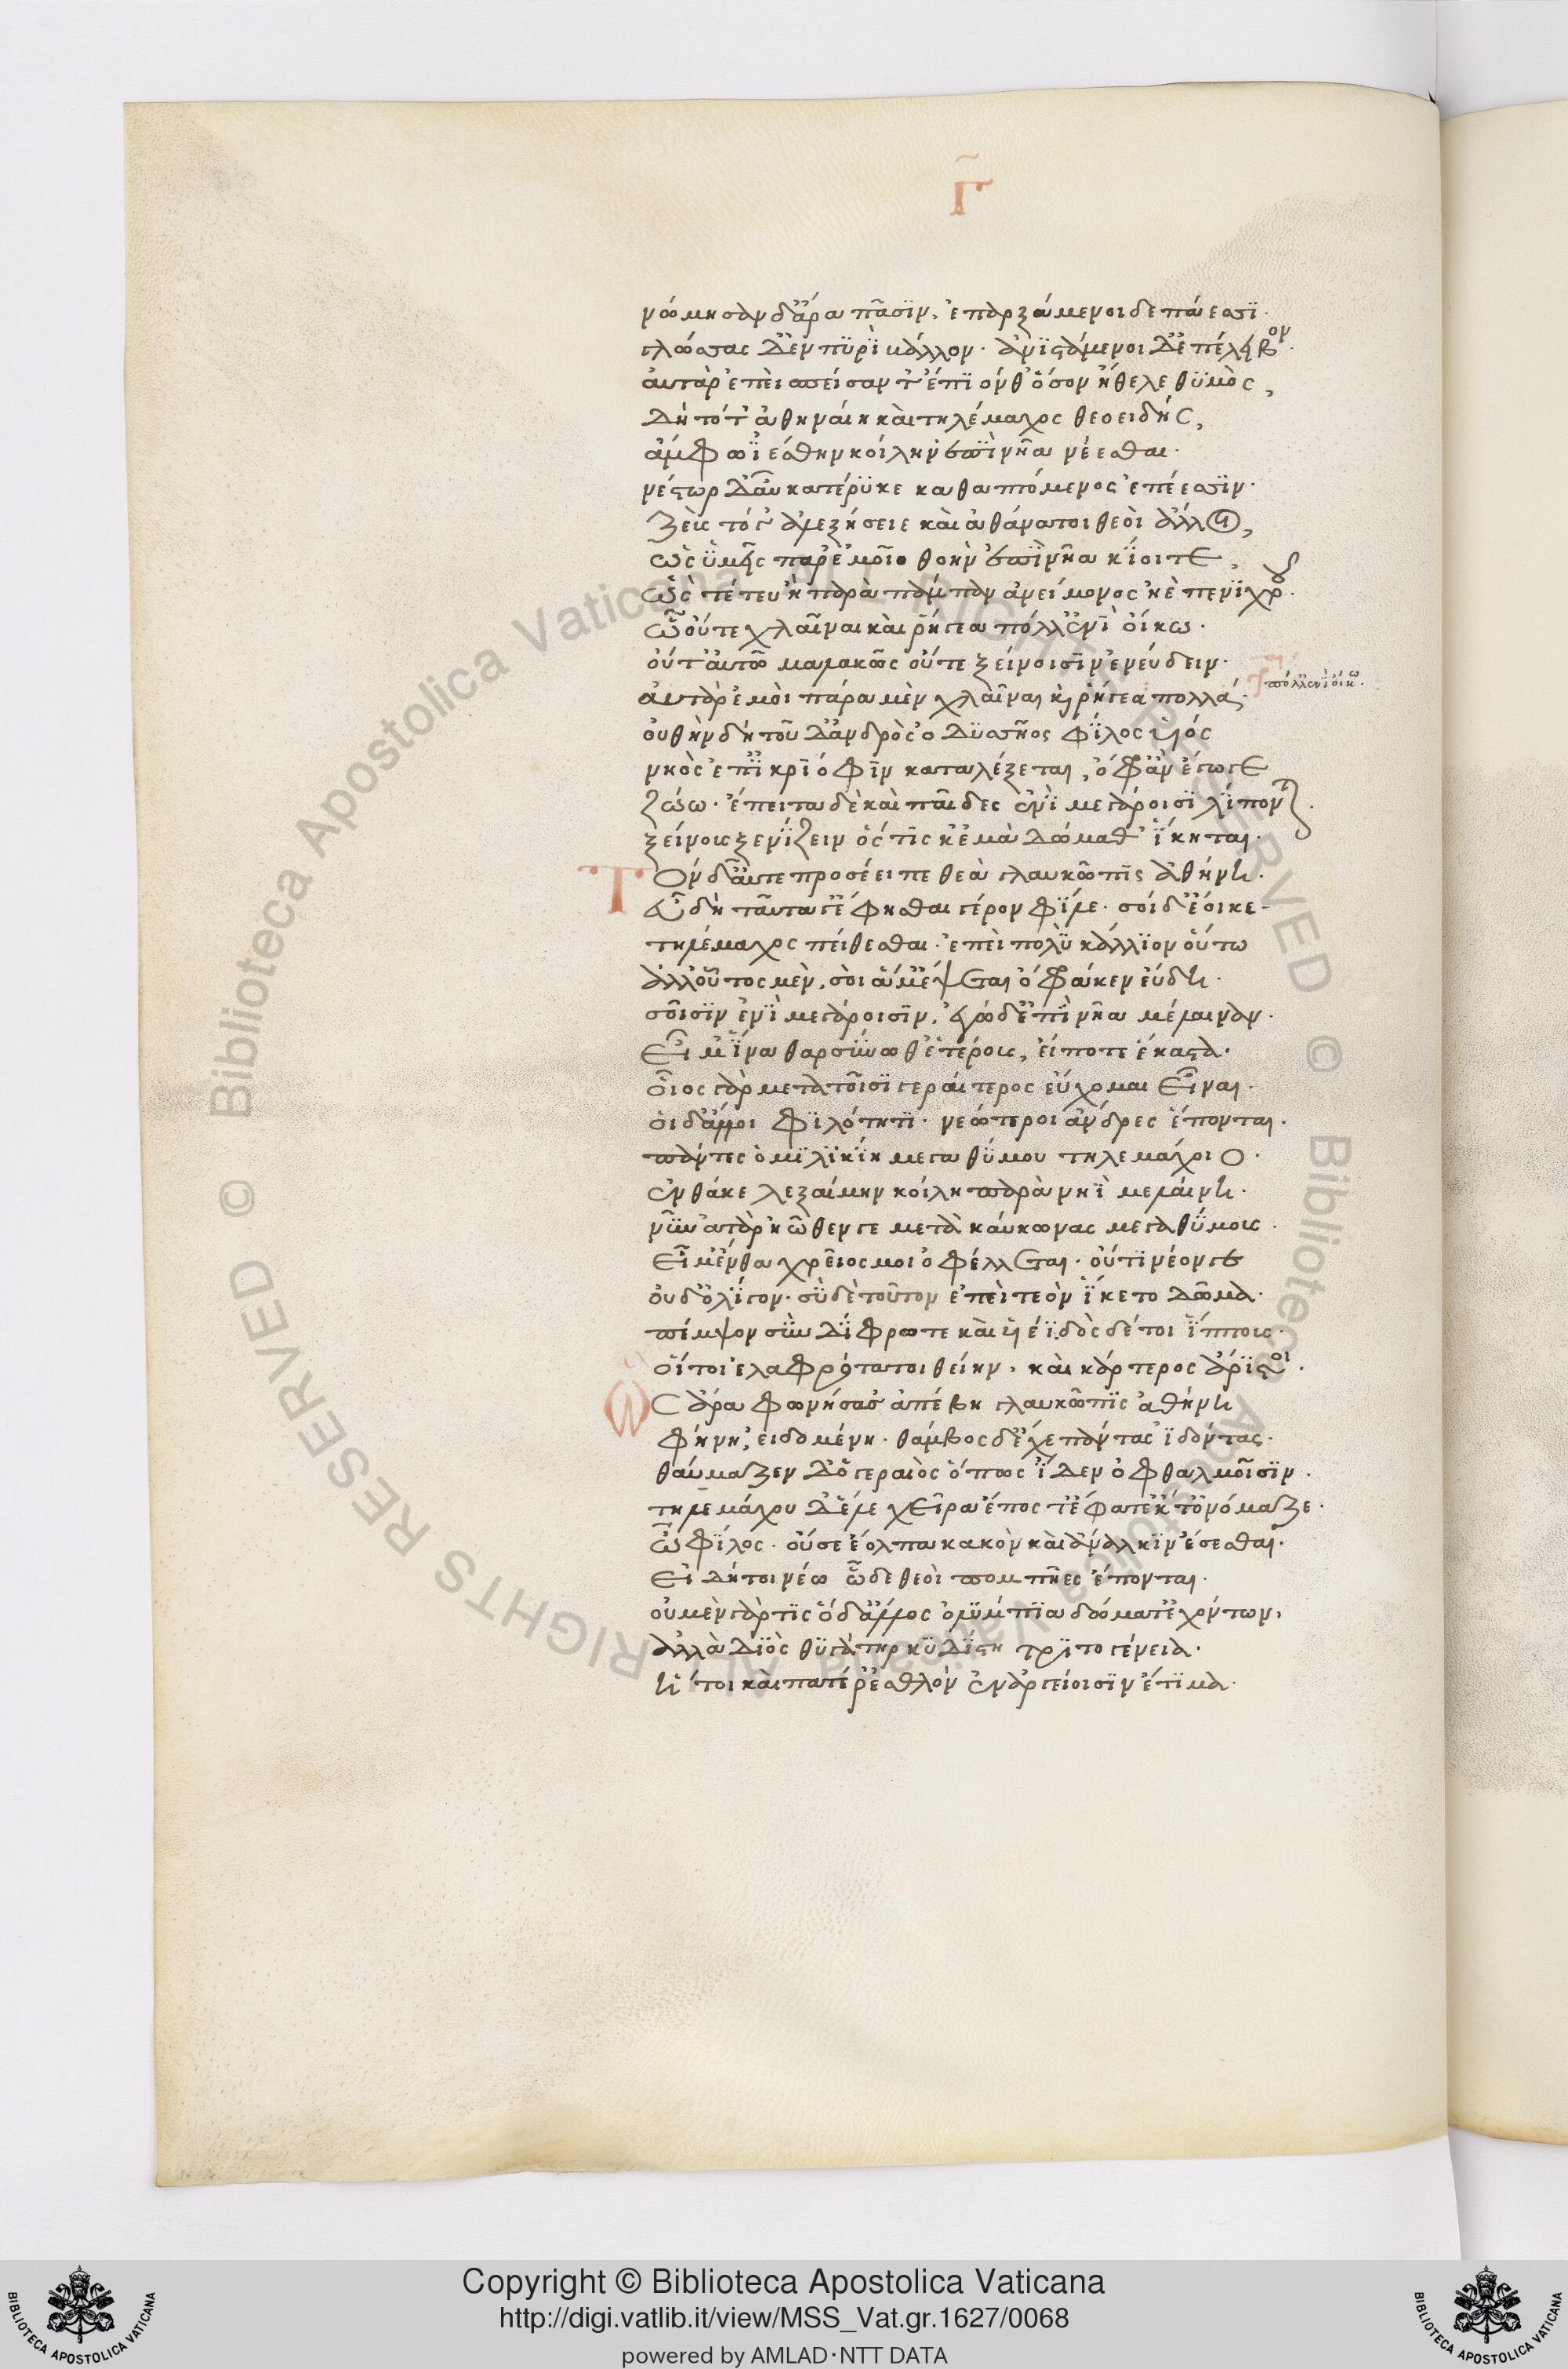 Γ
νώμησαν δ' ἄρα πᾶσιν, ἐπαρξάμενοι δεπάεσσι·
γλώσσας δ' ἐν πυρὶ βάλλον· ἀνϊστάμενοι δ' ἐπέλειβον·
αὐτὰρ ἐπεὶ σπεῖσάν τ' ἔπϊόν θ' ὅσον ἤθελε θυμὸς,
δὴ τότ' ἀθηναίη καὶ τηλέμαχος θεοειδής,
ἄμφω ϊέσθην κοίλην ἐπὶ νῆα νέεσθαι·
νέστωρ δ' αὖ κατέρυκε καθαπτόμενος ἐπέεσσιν·
Ζεὺς τό γ' ἀλεξήσειε καὶ ἀθάνατοι θεοὶ ἄλλοι,
ὡς ὑμεῖς παρ' ἐμοῖο θοὴν ἐπὶ νῆα κίοιτε,
ὥς τέ τευ ἢ παρὰ πάμπαν ἀνείμονος ἠὲ πενιχροῦ·
ὧ οὔτε χλαῖναι καὶ ῥήγεα πόλλ' ἐνὶ οἴκω·
οὔτ' αὐτῶ μαλακῶς οὔτε ξείνοισιν ἐνεύδειν·
πόλλ' ἐνὶ οἴκω·
αὐτὰρ ἐμοὶ πάρα μὲν χλαῖναι καὶ ῥήγεα πολλά·
οὐ θὴν δὴ τοῦδ' ἀνδρὸς ὀδυσσῆος φίλος υἱός
νηὸς ἐπ' ἰκριόφιν καταλέξεται, ὄφρ' ἂν ἔγωγε
ζώω· ἔπειτα δὲ καὶ παῖδες ἐνὶ μεγάροισι λίπωνται·
ξείνους ξενίζειν ὅς τίς κ' ἐμὰ δώμαθ' ἵκηται·
Τὸν δ' αὖτε προσέειπε θεὰ γλαυκῶπις ἀθήνη·
εὖ δὴ ταῦτά γ' ἔφησθα γέρον φίλε· σοὶ δ' ἔοικε
τηλέμαχος πείθεσθαι· ἐπεὶ πολὺ κάλλιον οὕτω
ἀλλ' οὗτος μὲν, σοὶ ἅμ' ἕψεται ὄφρά κεν εὕδη·
σοῖσιν ἐνὶ μεγάροισιν, ἐγὼ δ' ἐπὶ νῆα μέλαιναν·
εἶμ' ἵνα θαρσύνω θ' ἑτάρους, εἴπω τε ἕκαστα·
οἶος γὰρ μετὰ τοῖσι γεραίτερος εὔχομαι εἶναι·
οἱ δ' ἄλλοι φιλότητι· νεώτεροι ἄνδρες ἕπονται·
πάντες ὁμηλικίη μεγαθύμου τηλεμάχοιο·
ἔνθά κε λεξαίμην κοίλη παρὰ νηῒ μελαίνη·
νῦν· ἀτὰρ ἠῶθέν γε μετὰ καύκωνας μεγαθύμους·
εἶμ' ἔνθα χρεῖός μοι ὀφέλλεται· οὔτι νέον γε
οὐδ' ὀλίγον· σὺ δὲ τοῦτον ἐπεὶ τεὸν ἵκετο δῶμα·
πέμψον σὺν δίφρω τε καὶ υἱέϊ. δὸς δέ τοι ἵππους·
οἵ τοι ἐλαφρότατοι θείην, καὶ κάρτερος ἄριστοι·
Ὣς ἄρα φωνήσασ' ἀπέβη γλαυκῶπις ἀθήνη
φήνη, εἰδομένη· θάμβος δ' ἕχε πάντας ἰδόντας·
θαύμαζεν δ' ὁ γεραιὸς ὅπως ἴδεν ὀφθαλμοῖσιν·
τηλεμάχου δ' ἕλε χεῖρα ἔπος τ' ἔφατ' ἔκ τ' ὀνόμαζε·
ὦ φίλος· οὔ σε ἔολπα κακὸν καὶ ἄναλκιν ἔσεσθαι·
εἰ δή τοι νέω ὧδε θεοὶ πομπῆες ἕπονται·
οὐ μὲν γάρ τις ὅδ' ἄλλος ὀλύμπια δώματ' ἐχόντων,
ἀλλὰ διὸς θυγάτηρ κυδίστη τριτογένεια·
ἥ τοι καὶ πατέρ' ἐσθλὸν ἐν ἀργείοισιν ἐτίμα·
Copyright © Biblioteca Apostolica Vaticana
http://digi.vatlib.it/view/MSS_Vat.gr.1627/0068
powered by AMLAD·NTT DATA